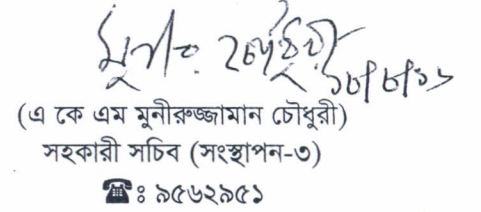 মুনীর চৌধুরী
১৮/৮/১১
(এ কে এম মুনীরুজ্জামান চৌধুরী)
সহকারী সচিব (সংস্থাপন-৩)
☎ঃ ৯৫৬২৯৫১